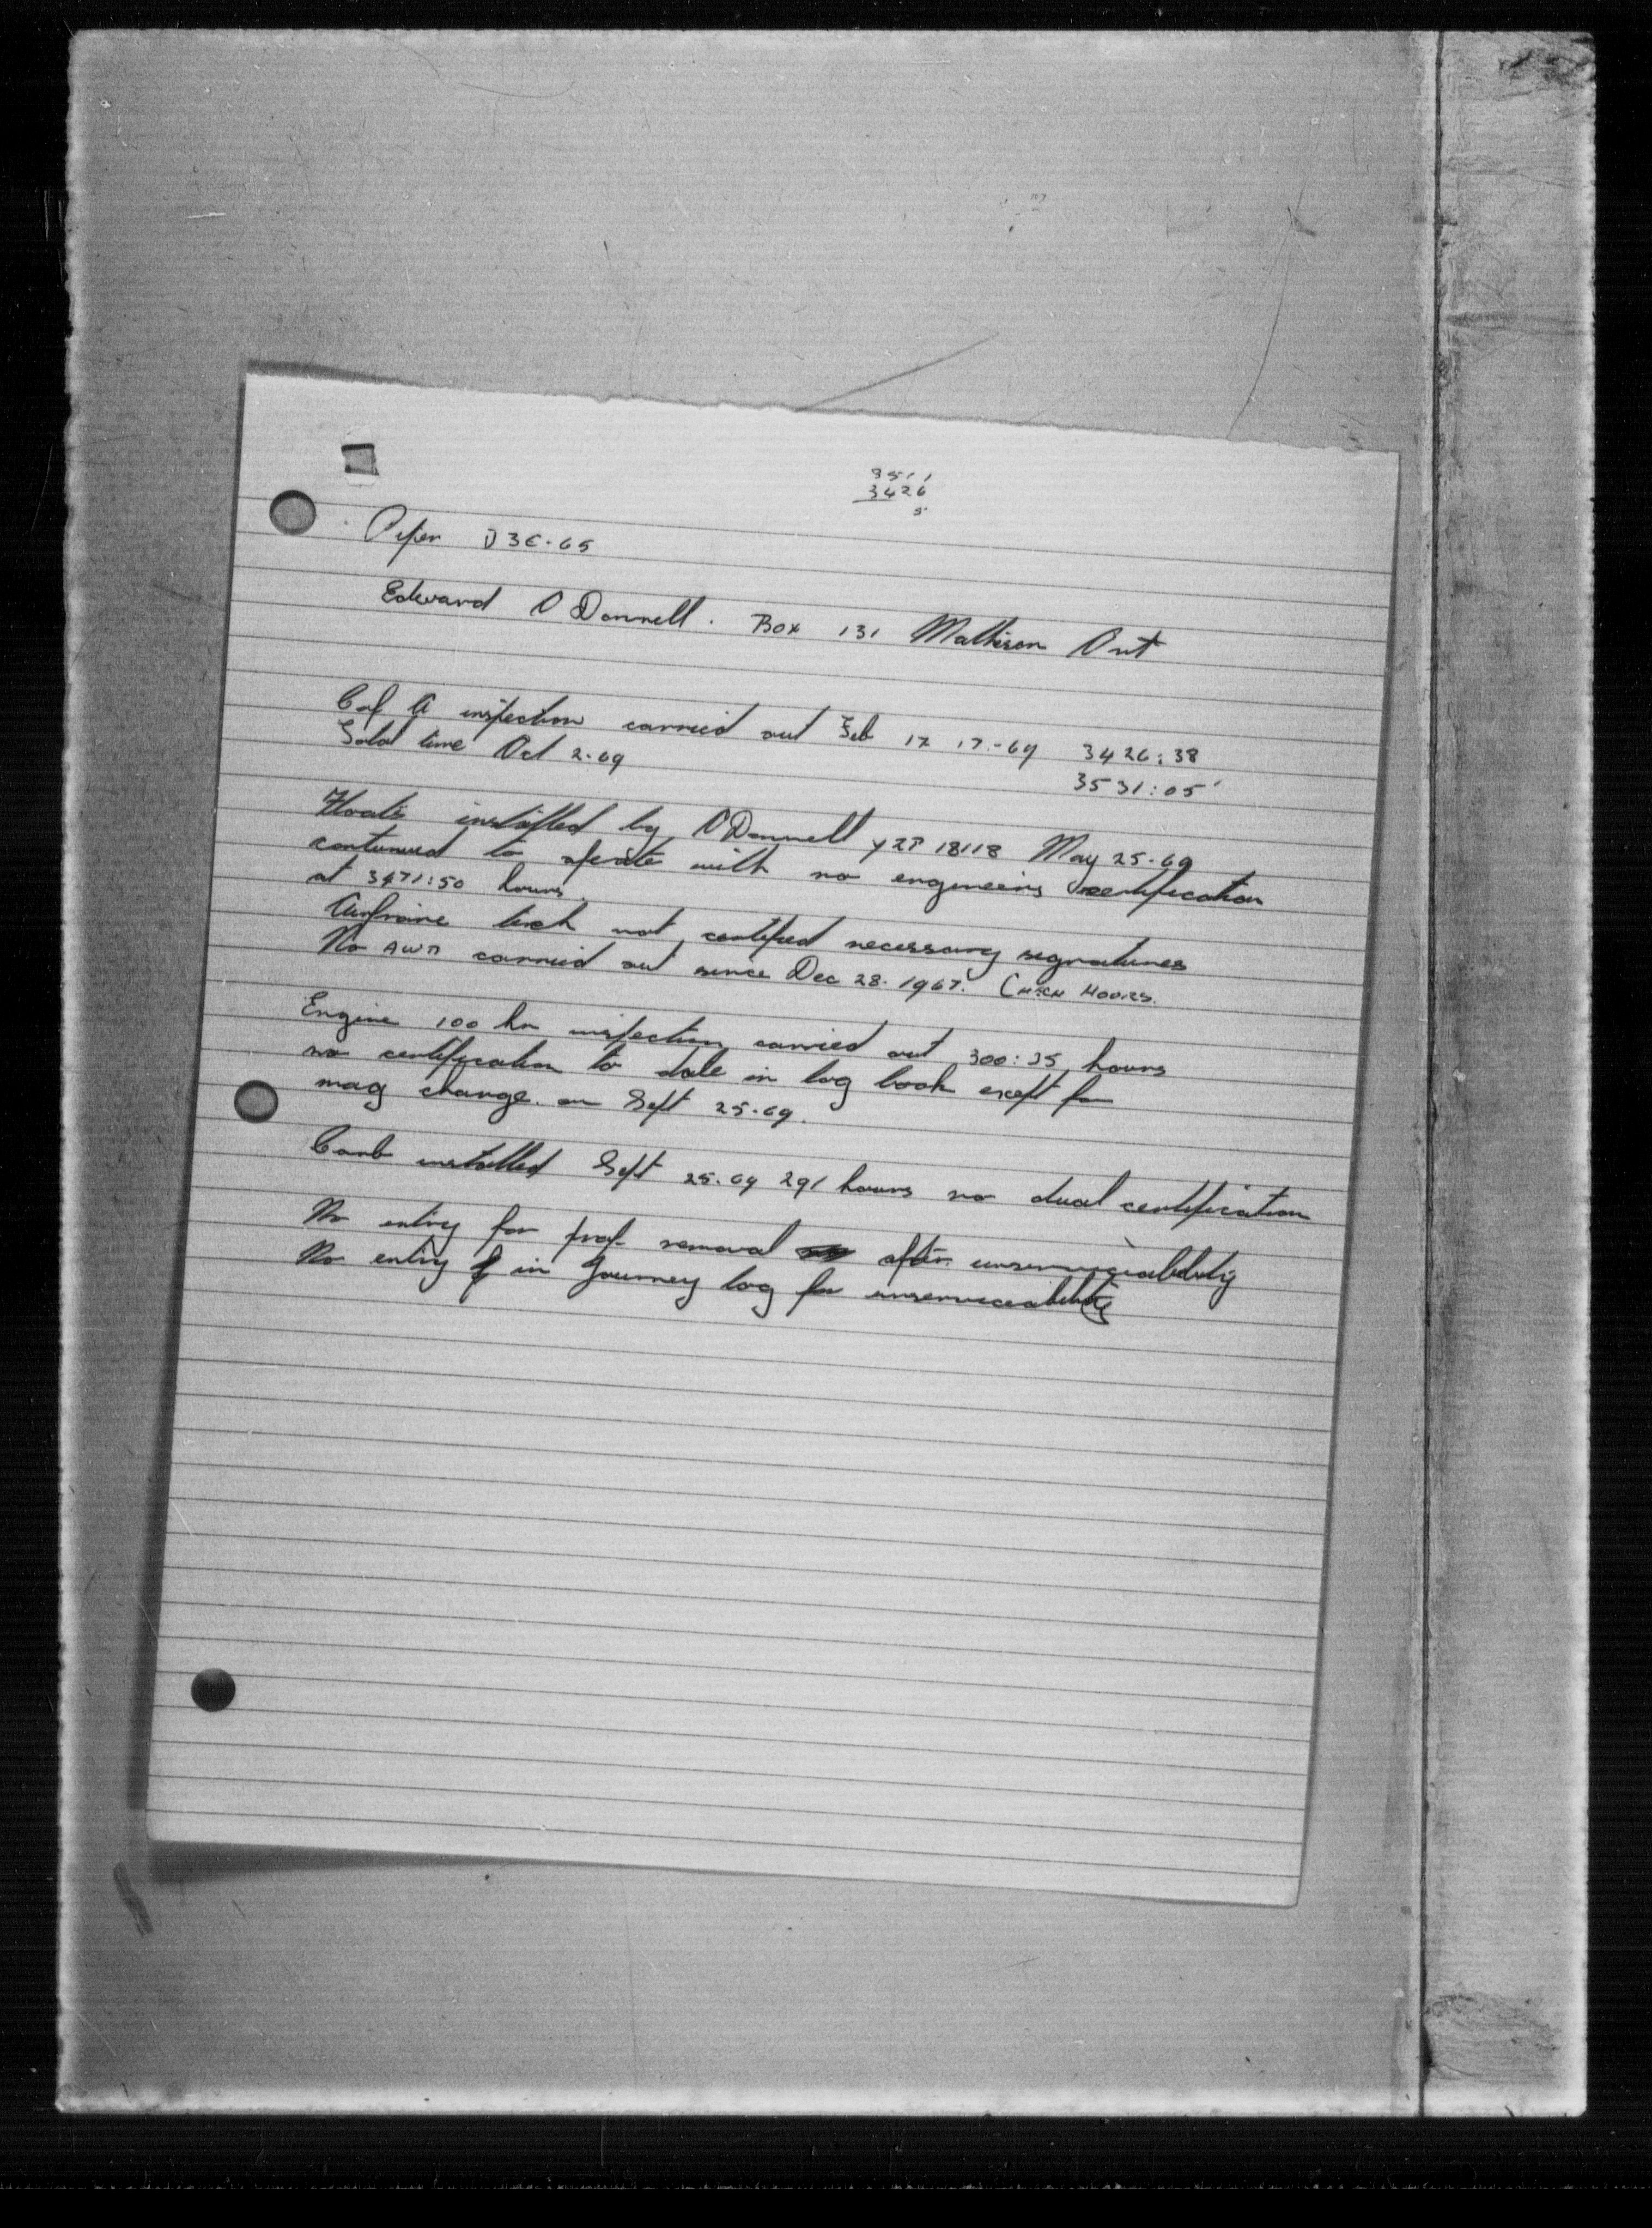 3511
3426
5
Piper J3C-65
Edward O Donnell. Box 131 Matheson Ont
C of A inspection carried out Feb 17 17-69 3426:38
Total time Oct 2-69
3531:05
Floats installed by O Donnell YZP 18118 May 25-69
continued to operate with no engineers certification
at 3471:50 hours.
Airframe tech not certified necessary signatures
No AWD carried out since Dec 28. 1967. (CHECK HOURS.
Engine 100 hr inspection carried out 300:35 hours
no certification to date in log book except for
mag change on Sept 25-69.
Carb installed Sept 25.69 291 hours no dual certification
No entry for prop removal after unserviceability
No entry in Journey log for unserviceability